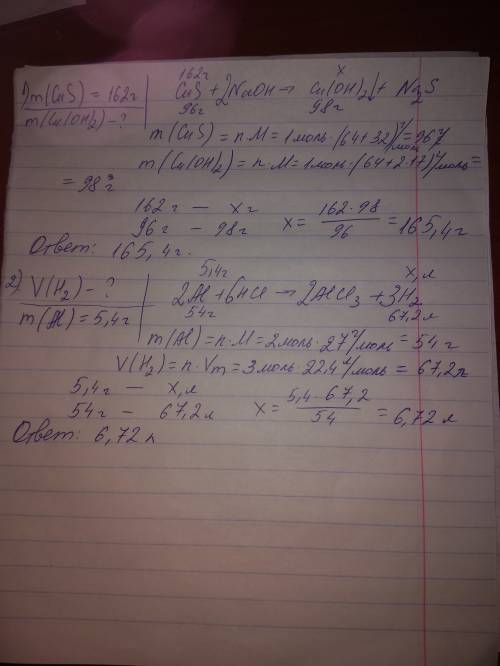 162г x
1) m(CuS) = 162г CuS + 2NaOH → Cu(OH)₂↓ + Na₂S
m(Cu(OH)₂) - ? 96г 98г
m(CuS) = n·M = 1моль·(64+32)г/моль = 96г
m(Cu(OH)₂) = n·M = 1моль·(64+2·17)г/моль =
= 98г
162г — xг
96г — 98г x = 162·98/96 = 165,4г
Ответ: 165,4г.
5,4г x,л
2) V(H₂) - ? 2Al + 6HCl → 2AlCl₃ + 3H₂
m(Al) = 5,4г 54г 67,2л
m(Al) = n·M = 2моль·27г/моль = 54г
V(H₂) = n·Vm = 3моль·22,4л/моль = 67,2л
5,4г — x,л
54г — 67,2л x = 5,4·67,2/54 = 6,72л
Ответ: 6,72л